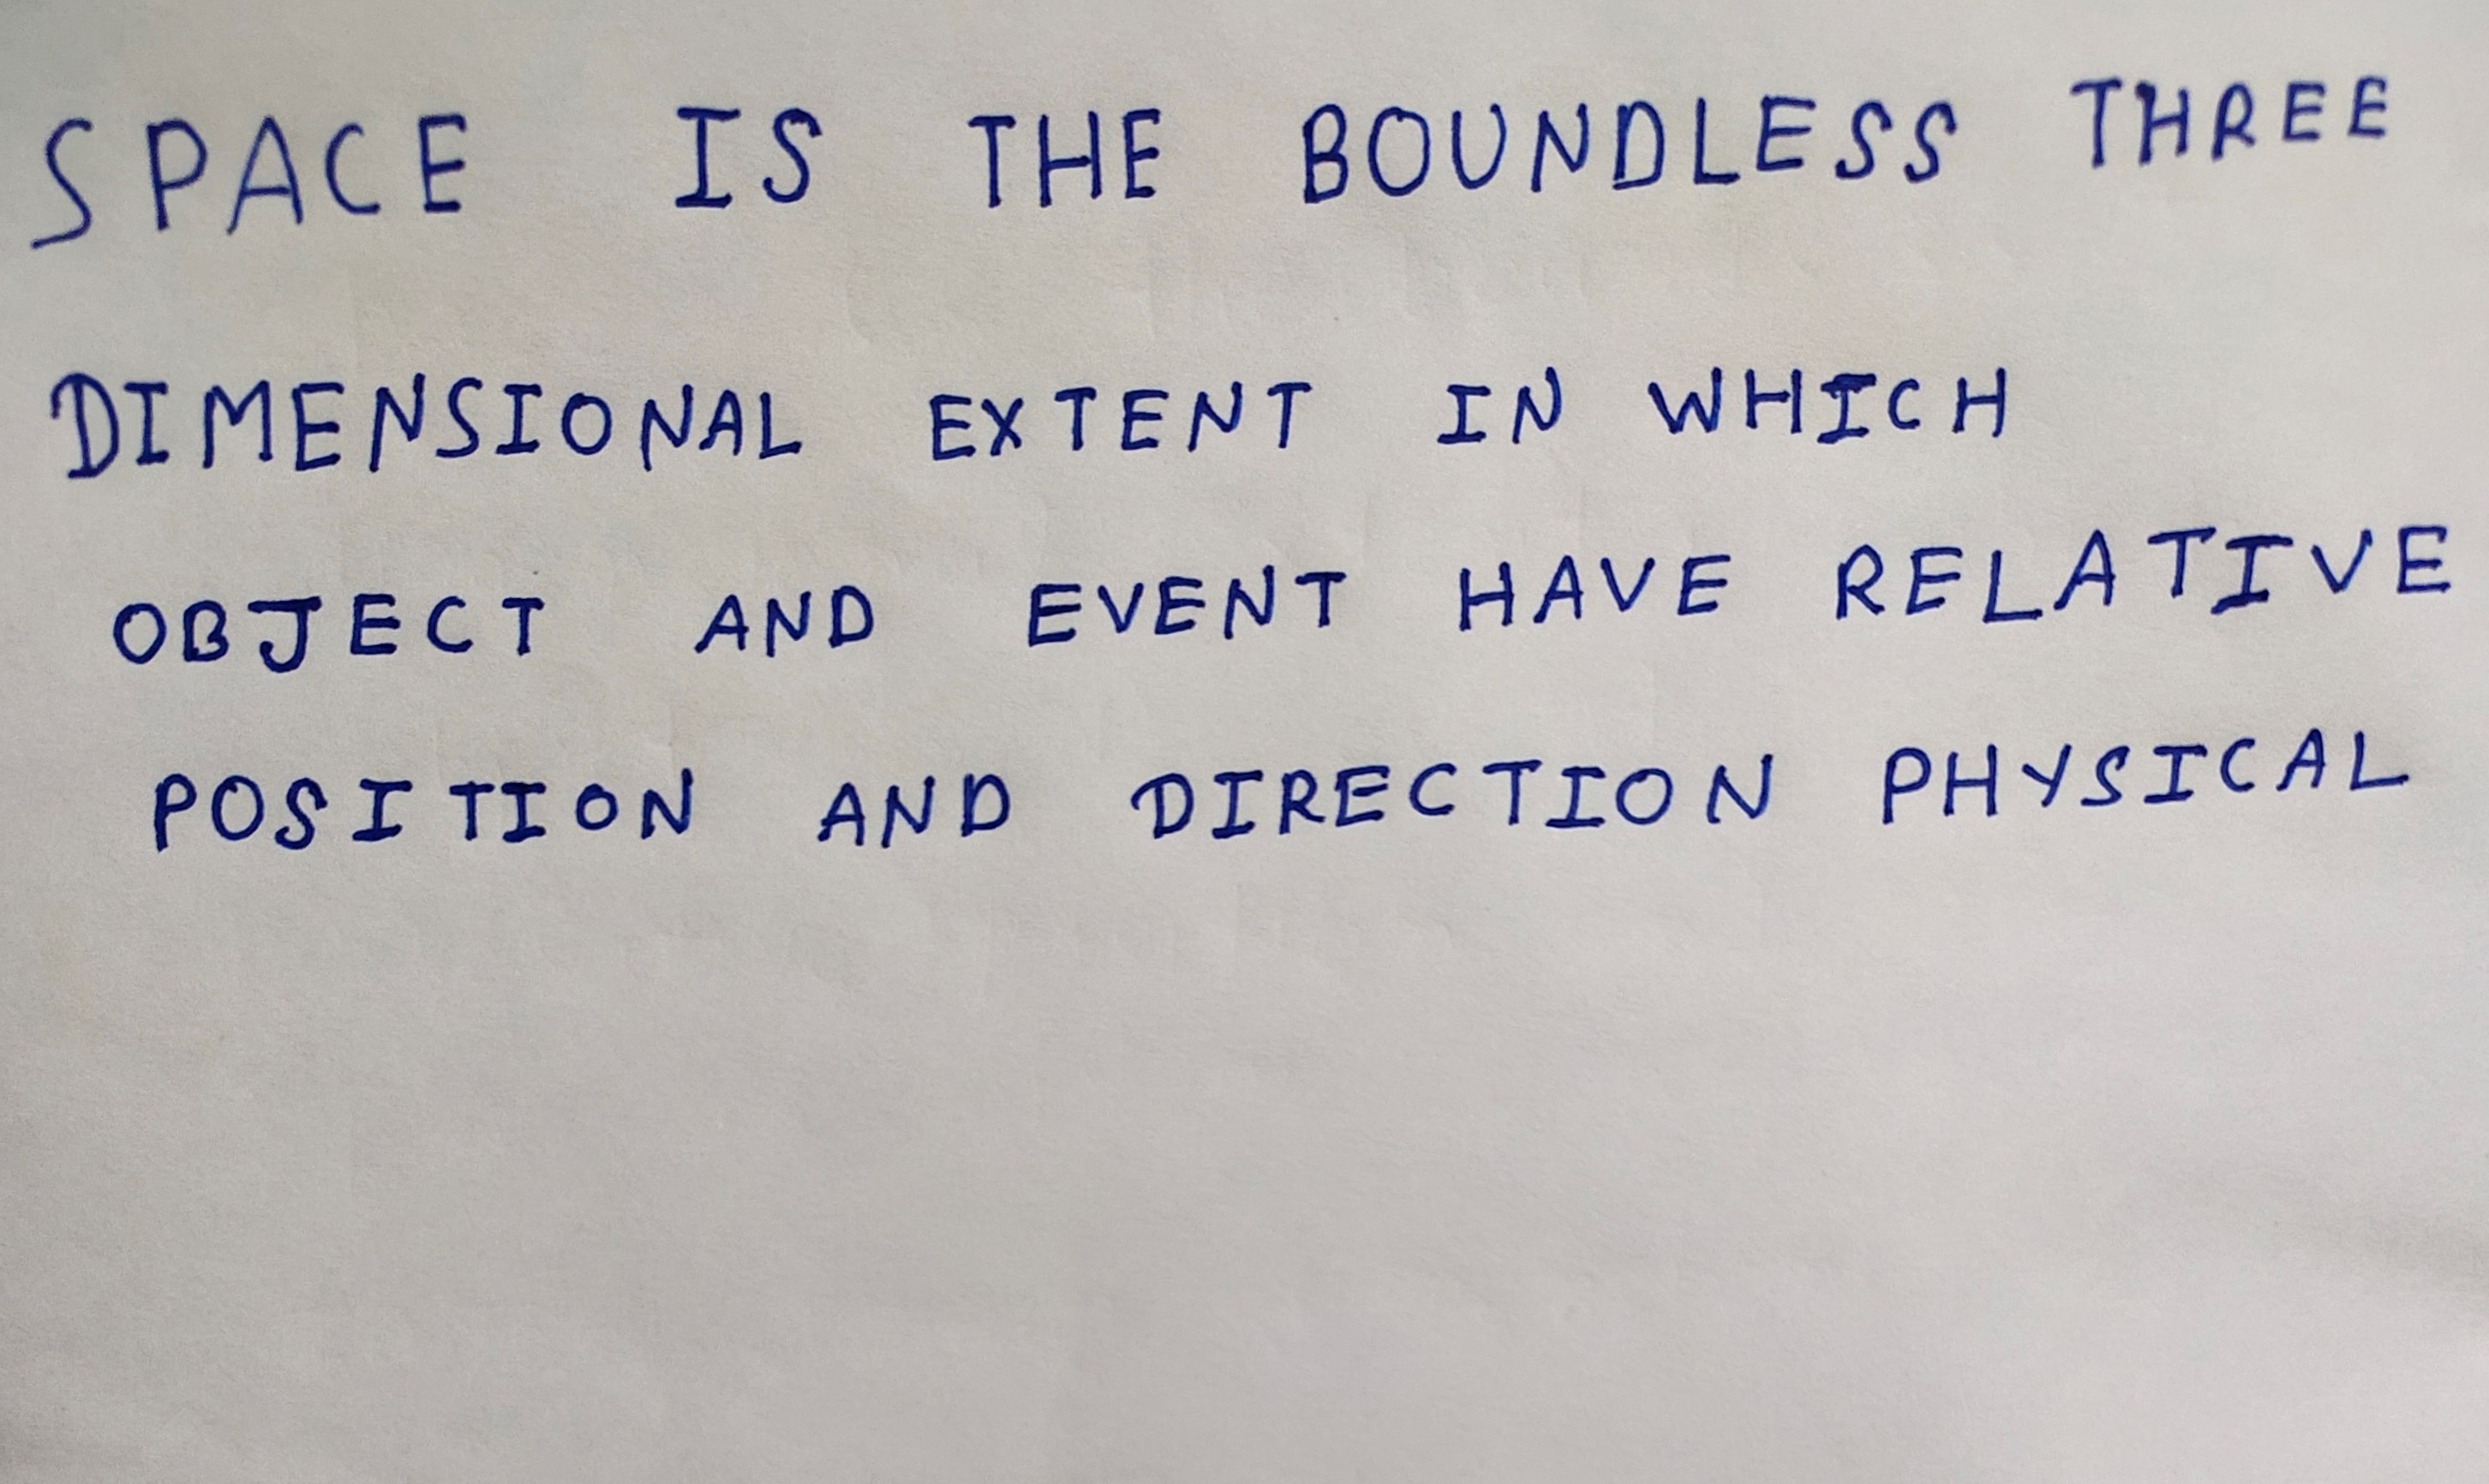 SPACE IS THE BOUNDLESS THREE
DIMENSIONAL EXTENT IN WHICH
OBJECT AND EVENT HAVE RELATIVE
POSITION AND DIRECTION PHYSICAL